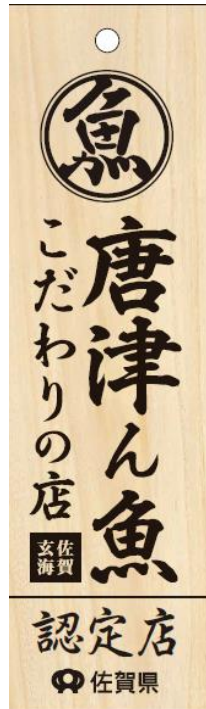 魚
唐津ん魚
こだわりの店
佐賀
玄海
認定店
佐賀県